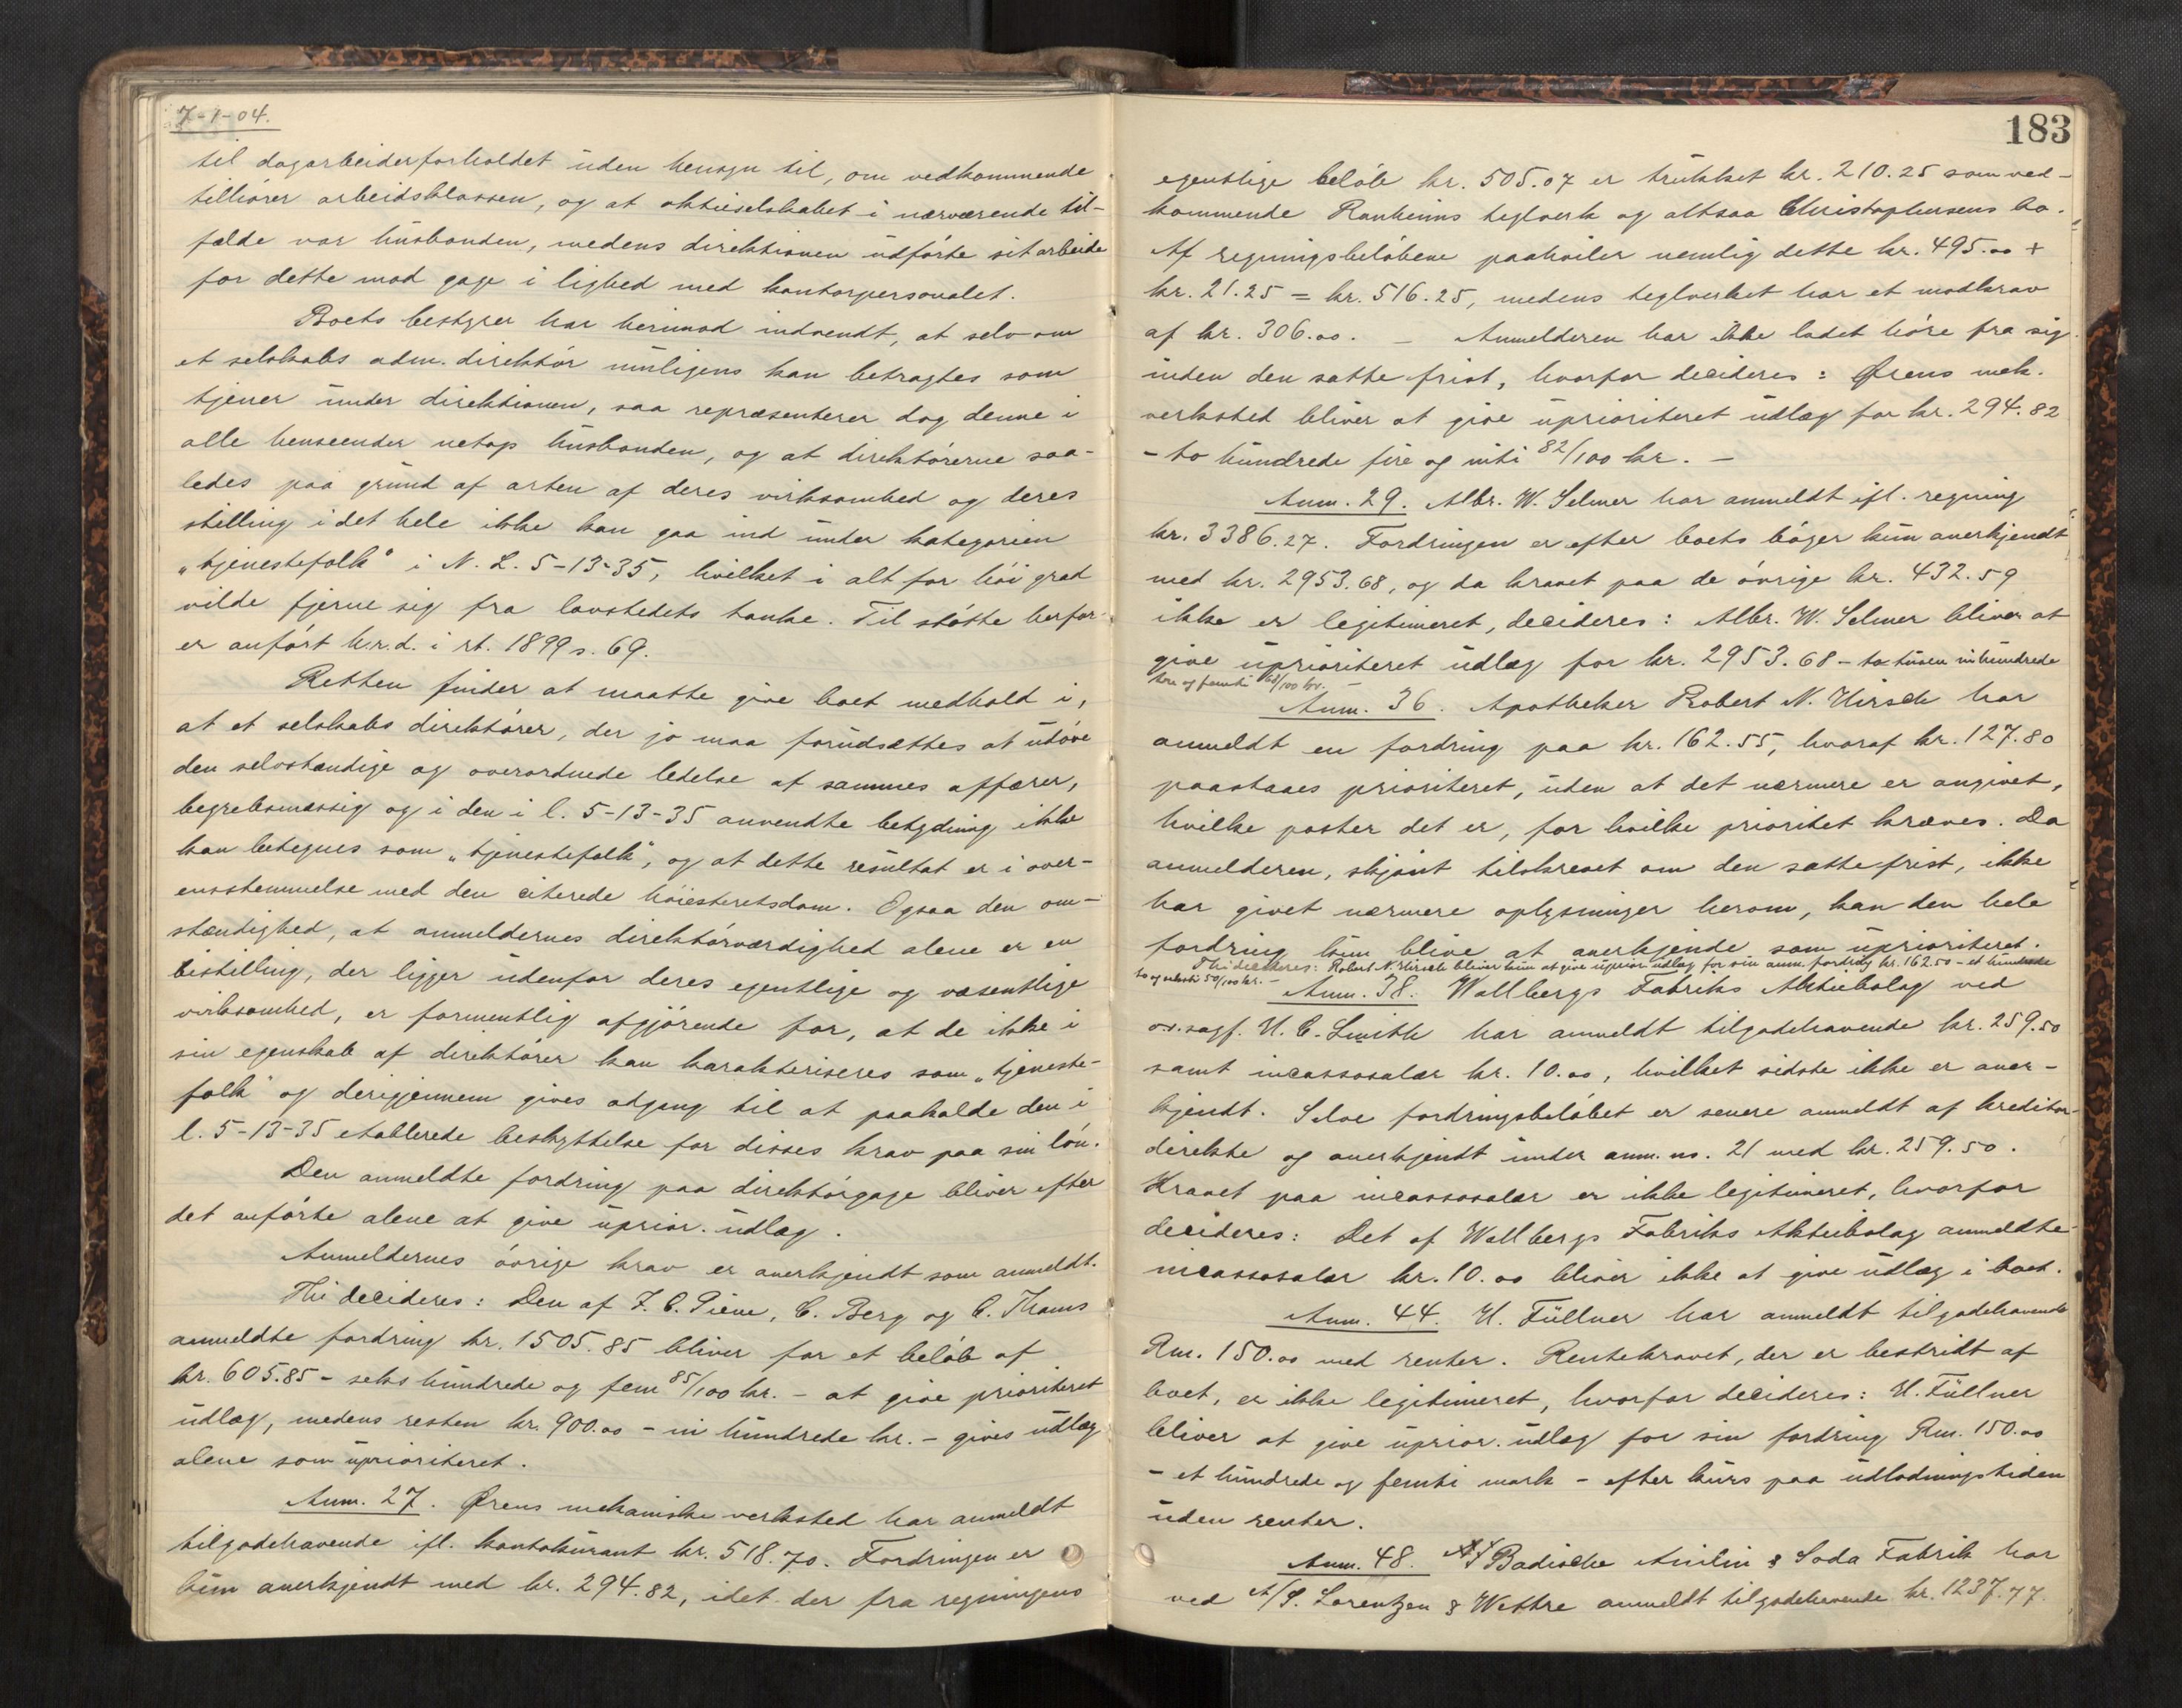 7-1-04.
til dagarbeiderforholdet uden hensyn til, om vedkommende
tilhører arbeidsklassen, og at aktieselskabet i nærværende til-
fælde var husbonden, medens direktionen udførte sit arbeide
for dette mod gage i lighed med kontorpersonalet.
Boets bestyrer har herimod indvendt, at selv om
et selskabs adm. direktør muligens kan betragtes som
tjener under direktionen, saa repræsenterer dog denne i
alle henseender netop husbonden, og at direktørerne saa-
ledes paa grund af arten af deres virksomhed og deres
stilling i det hele ikke kan gaa ind under kategorien
„tjenestefolk“ i N. L. 5-13-35, hvilket i alt for høi grad
vilde fjerne sig fra lovstedets tanke. Til støtte herfor
er anført h.r.d. i rt. 1899 s. 69.
Retten finder at maatte give boet medhold i,
at et selskabs direktører, der jo maa forudsættes at udøve
den selvstændige og overordnede ledelse af sammes affærer,
begrebsmæssig og i den i l. 5-13-35 anvendte betydning ikke
kan betegnes som „tjenestefolk“, og at dette resultat er i over-
ensstemmelse med den citerede høiesteretsdom. Ogsaa den om-
stændighed, at anmeldernes direktørværdighed alene er en
bistilling, der ligger udenfor deres egentlige og væsentlige
virksomhed, er formentlig afgjørende for, at de ikke i
sin egenskab af direktører kan karakteriseres som „tjeneste-
folk“ og derigjennem gives adgang til at paakalde den i
l. 5-13-35 etablerede beskyttelse for disses krav paa sin løn.
Den anmeldte fordring paa direktørgage bliver efter
det anførte alene at give uprior. udlæg.
Anmeldernes øvrige krav er anerkjendt som anmeldt.
Thi decideres: Den af F. C. Piene, C. Berg og C. Thams
anmeldte fordring kr. 1505.85 bliver for et beløb af
kr. 605.85 - seks hundrede og fem 85/100 kr. - at give prioriteret
udlæg, medens resten kr. 900.00 - ni hundrede kr. - gives udlæg
alene som uprioriteret.
Anm. 27. Ørens mekaniske verksted har anmeldt
tilgodehavende ifl. kontokurant kr. 518.70. Fordringen er
kun anerkjendt med kr. 294.82, idet der fra regningens
183
egentlige beløb kr. 505.07 er trukket kr. 210.25 som ved-
kommende Ranheims teglverk og altsaa Christophersens bo.
Af regningsbeløbene paahviler nemlig dette kr. 495.00 +
kr. 21.25 = kr. 516.25, medens teglverket har et modkrav
af kr. 306.00. – Anmelderen har ikke ladet høre fra sig
inden den satte frist, hvorfor decideres: Ørens mek.
verksted bliver at give uprioriteret udlæg for kr. 294.82
- to hundrede fire og niti 82/100 kr. -
Anm. 29. Albr. W. Selmer har anmeldt ifl. regning
kr. 3386.27. Fordringen er efter boets bøger kun anerkjendt
med kr. 2953.68, og da kravet paa de øvrige kr. 432.59
ikke er legitimeret, decideres: Albr. W. Selmer bliver at
give uprioriteret udlæg for kr. 2953.68 - to tusen nihundrede
tre og femti 68/100 kr. -
Anm. 36. Apotheker Robert N. Hirsch har
anmeldt en fordring paa kr. 162.55, hvoraf kr. 127.80
paastaaes prioriteret, uden at det nærmere er angivet,
hvilke poster det er, for hvilke prioritet kræves. Da
anmelderen, skjønt tilskrevet om den satte frist, ikke
har givet nærmere oplysninger herom, kan den hele
fordring kun blive at anerkjende som uprioriteret.
Thi decideres: Robert N. Hirsch bliver kun at give uprior. udlæg for sin anm. fordring kr. 162.50 - et hundrede
to og seksti 50/100 kr. -
Anm. 38. Wallbergs Fabriks Aktiebolag ved
o.r.sagf. H. C. Smith har anmeldt tilgodehavende kr. 259.50
samt incassosalær kr. 10.00, hvilket sidste ikke er aner-
kjendt. Selve fordringsbeløbet er senere anmeldt af kreditor
direkte og anerkjendt under anm. no. 21 med kr. 259.50.
Kravet paa incassosalær er ikke legitimeret, hvorfor
decideres: Det af Wallbergs Fabriks Aktiebolag anmeldte
incassosalær kr. 10.00 bliver ikke at give udlæg i boet.
Anm. 44. H. Füllner har anmeldt tilgodehavende
Rm. 150.00 med renter. Rentekravet, der er bestridt af
boet, er ikke legitimeret, hvorfor decideres: H. Füllner
bliver at give uprior. udlæg for sin fordring Rm. 150.00
- et hundrede og femti mark - efter kurs paa udlodningstiden
uden renter.
Anm. 48. A/S Badische Anilin & Soda Fabrik har
ved A/S. Lorentzen & Wettre anmeldt tilgodehavende kr. 1237.77